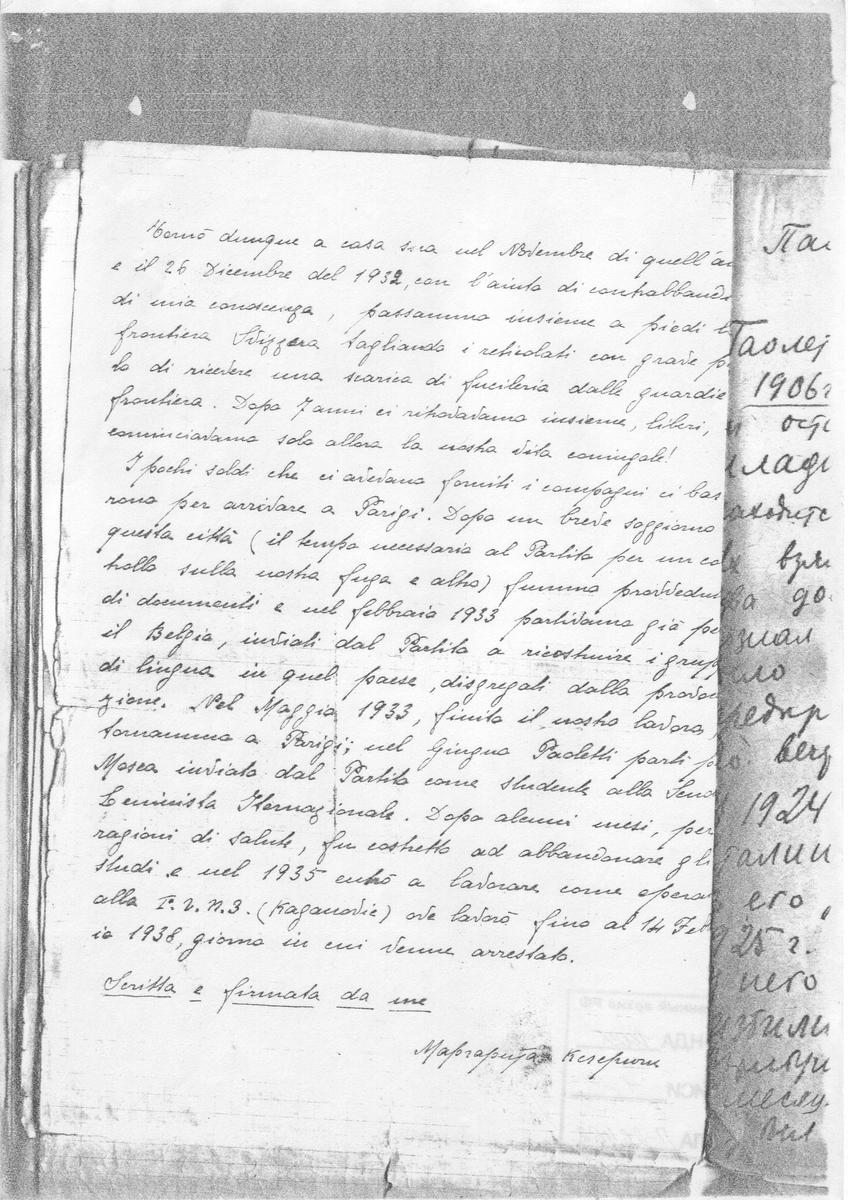 Tornò dunque a casa sua nel Novembre di quell'an
e il 26 Dicembre del 1932, con l'aiuto di contrabband
di mia conoscenza, passammo insieme a piedi l
frontiera Svizzera tagliando i reticolati con grave p
lo di ricevere una scarica di fucileria dalle guardie
frontiera. Dopo 7 anni ci ritrovavamo insieme, liberi,
cominciavamo solo allora la nostra vita coniugale!
I pochi soldi che ci avevano forniti i compagni ci bas
rono per arrivare a Parigi. Dopo un breve soggiorno
questa città (il tempo necessario al Partito per un co
trollo sulla nostra fuga e altro) fummo provvedu
di documenti e nel febbraio 1933 partivamo già pe
il Belgio, inviati dal Partito a ricostruire i grup
di lingua in quel paese, disgregati dalla provoc
zione. Nel Maggio 1933, finito il nostro lavoro,
tornammo a Parigi; nel Giugno Paoletti partì p
Mosca inviato dal Partito come studente alla Scuo
Leninista Iternazionale. Dopo alcuni mesi, per
ragioni di salute, fu costretto ad abbandonare gli
studi e nel 1935 entrò a lavorare come opera
alla Г.П.З. (Kaganovic) ove lavorò fino al 14 Feb
io 1938, giorno in cui venne arrestato.
Scritto e firmato da me
Маргарита
Пао
Паолет
1906г
и ост
млад
находитс
взя
до
знал
ло
редпр
1924
талии
его,
25 г.
него
избили
месяц